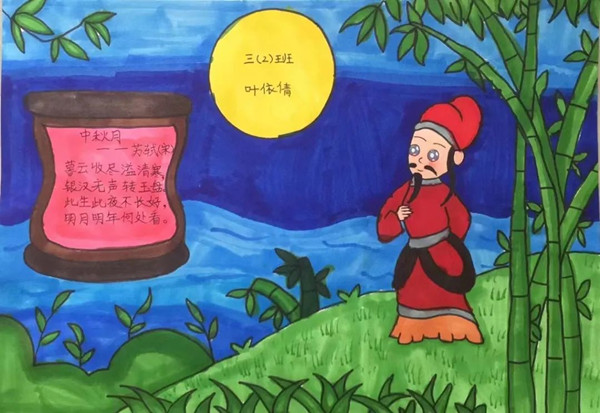 三(2)班
叶依倩
中秋月
——苏轼(宋)
暮云收尽溢清寒,
银汉无声转玉盘。
此生此夜不长好,
明月明年何处看。